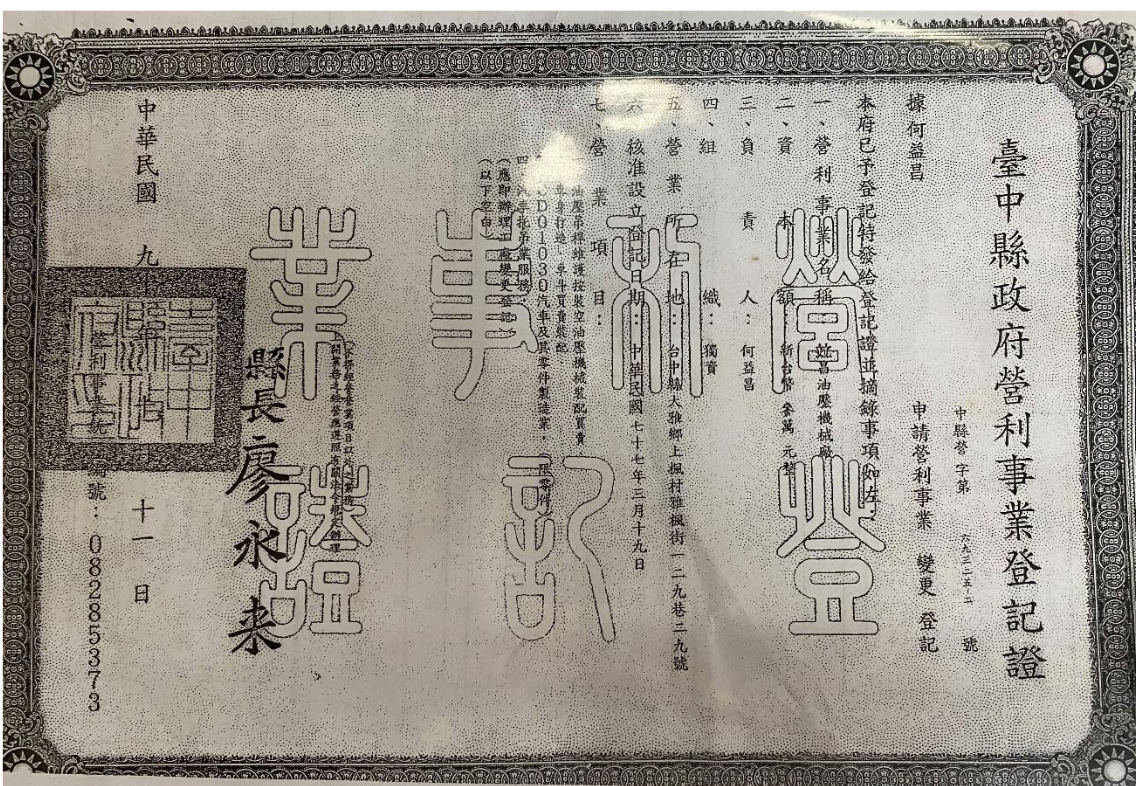 臺中縣政府營利事業登記證
中縣營字第 號
據何益昌 申請營利事業 變更 登記
本府已予登記特發給登記證並摘錄事項如左：
一、營利事業名稱： 昌油壓機械廠
二、資本額： 新台幣 參萬 元整
三、負責人： 何益昌
四、組織： 獨資
五、營業所在地： 台中縣大雅鄉上楓村雅楓街一二九巷三九號
六、核准設立登記日期： 中華民國七十七年三月十九日
七、營業項目：
油壓吊桿維護按裝空油壓機械裝配買賣
車身打造、車斗買賣裝配
CD01030汽車及其零件製造業
四、汽車拖吊業服務
（應即辦理工廠變更登記）
（以下空白）
營利事業登記證
縣長廖永来
中華民國 九十 年 十一日
營利事業統一編號：08285373